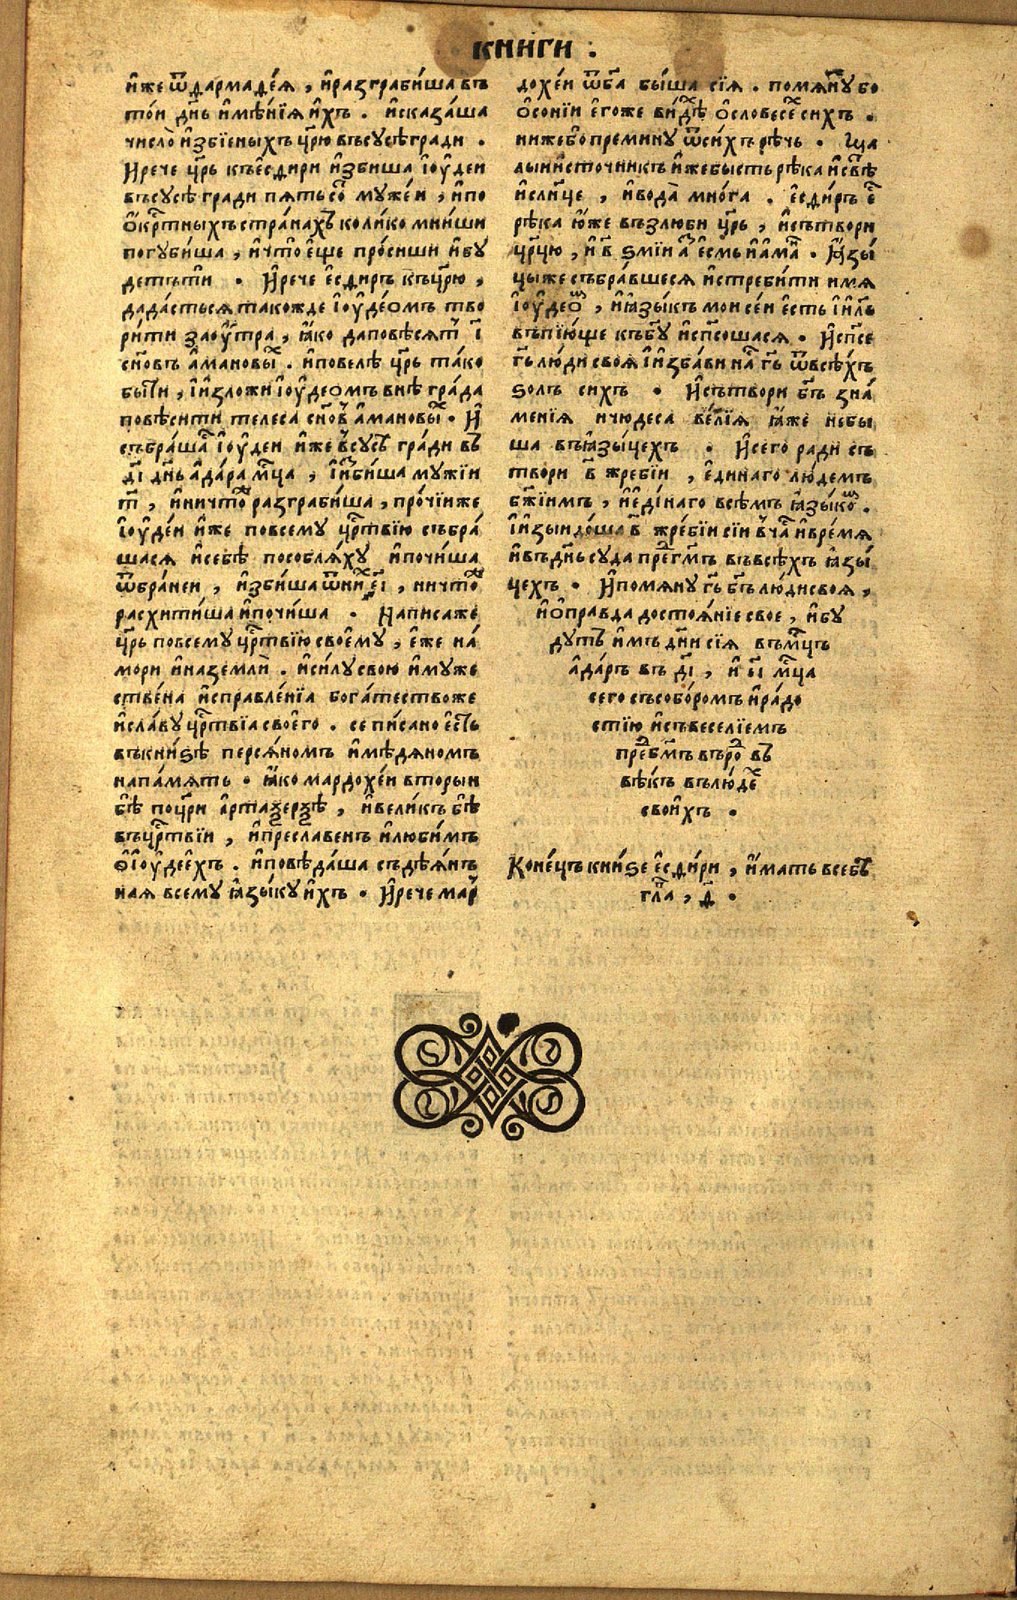 книги .
и҆же ѿдармаде́ѧ , и҆разграби́ша въ
то́и дн҃ь и҆мѣ́нїѧ и҆хъ . и҆сказа́ша
число̀ и҆збїеныхъ цр҃ю въсусѣгради .
И҆рече цр҃ь къе҆сдири и҆збиша і҆оу҆деи
въсусѣ гради пѧтьсо҃ муже́и , и҆по
о҆кр҃тныхъстра́нахъ коли́ко мни́ши
погуби́ша , и҆что̀ е҆ще про́сиши и҆бу
детъти . И҆рече е҆сдирь къцр҃ю ,
дада́стьсѧ такожде і҆оу҆де́омъ тво
ри́ти заоу҆́тра , ꙗ҆ко даповѣсѧт҃ і҃
сн҃овъ а҆манові҃ . и҆повелѣ цр҃ь та́ко
бы́ти , і҆и҆зложи і҆оу҆де́омъ внѣ гра́да
повѣсити телеса сн҃овъ а҆мановы҃ . И҆
събра́ша҃ і҆оу҆деи и҆же въсусѣ гради въ
д҃і дн҃ь а҆да́ра мц҃а , і҆и҆зби́ша мужїи
т҃ , и҆ничто́ разграби́ша , про́чїиже
і҆оу҆де́и и҆же повсему цр҃твїю събра́
шасѧ и҆себѣ пособлѧ́ху и҆почи́ша
ѿбра́неи , и҆збиша ѿни҃ е҃і , ничто҃
расхити́ша и҆почи́ша . Написаже
цр҃ь повсему цр҃твїю свое҆му , е҆же на́
мори и҆наземлѝ . и҆си́лу свою и҆муже
стве́на и҆справле́нїа бога́тествоже
и҆сла́ву цр҃твїа свое҆го . се пи́сано е҆сть
въкни́ѕѣ персѧ́номъ и҆мѣ́дѧномъ
напа́мѧть . ꙗ҆ко мардохе́и вторыи
бѣ̀ поцр҃и а҆рта́ѯерѯѣ , и҆вели́къ бѣ̀
въцр҃твїи , и҆пресла́венъ и҆люби́мъ
ѿі҆оу҆де́и҆хъ . и҆повѣ́даша съдѣѧ́нъ
наѧ всему ꙗ҆зы́ку и҆хъ . И҆рече мар҃
дохе́и ѿб҃а бы́ша сїѧ . помѧну҃ бо
о҆со́нїи е҆гоже ви́дѣ҃ о҆словесе҃ сихъ .
нижебо премину ѿси́хърѣчь . Ꙗ҆ща
лыи и҆сточникъ и҆жебысть рѣка и҆свѣ҃
и҆сл҃нце , и҆вода̀ мно́га . е҆сди́рь е҃
рѣка ю҆же възлюби цр҃ь , и҆сътвори
цр҃цю , и҆в҃ ѕмїи а҃ е҆смь и҆а҆ма҃ . Ꙗ҆зы́
цыже събра́вшесѧ и҆стребити имѧ
і҆оу҆део҃ , и҆ꙗ҆зы́къ мои се́и е҆сть і҆и҃ль
въпїю́ще къб҃у и҆сп҃сошасѧ . И҆сп҃се
г҃ь лю́ди своѧ̀ і҆и҆зба́ви на҃ г҃ь ѿвсѣ́хъ
ѕолъ сихъ . И҆сътвори б҃ъ зна́
менїѧ ичюдеса ве́лїѧ ꙗ҆́же небы
ша въꙗ҆зы́цехъ . И҆сего ради съ
твори в҃ жребїи , е҆динаго лю́демъ
бж҃їимъ , и҆е҆ди́наго всѣмъ ꙗ҆зы́ко҃ .
І҆и҆зыидо́ша в҃ жре́бїи сїи въча҃ и҆вре́мѧ
и҆въдн҃ь суда пре҃г҃мъ въвсѣхъ ꙗ҆зы́
цехъ . И҆помѧну г҃ь б҃ъ лю́ди своѧ ,
и҆о҆правда достоѧ́нїе свое , и҆бу
дутъ и҆мъ дн҃и сїѧ въмц҃ъ
а҆да́ръ въ д҃і , и҆ е҃і мц҃а
сего съсобо́ромъ и҆ра́до
стїю и҆съвеселїемъ
пре҃б҃мъ въро҃ въ
вѣ́къ вълю́де҃
свои҆хъ .
Коне́цъ кни́ѕе е҆сди́ри , и҆мать всебѣ
гл҃а , д҃ .